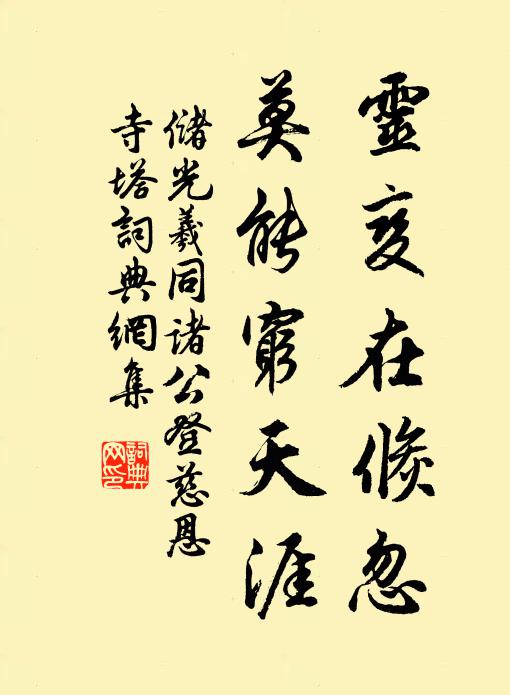 靈变在倏忽
莫能窮天涯
儲光羲同諸公登慈恩
寺塔詞典網集
詞典网印